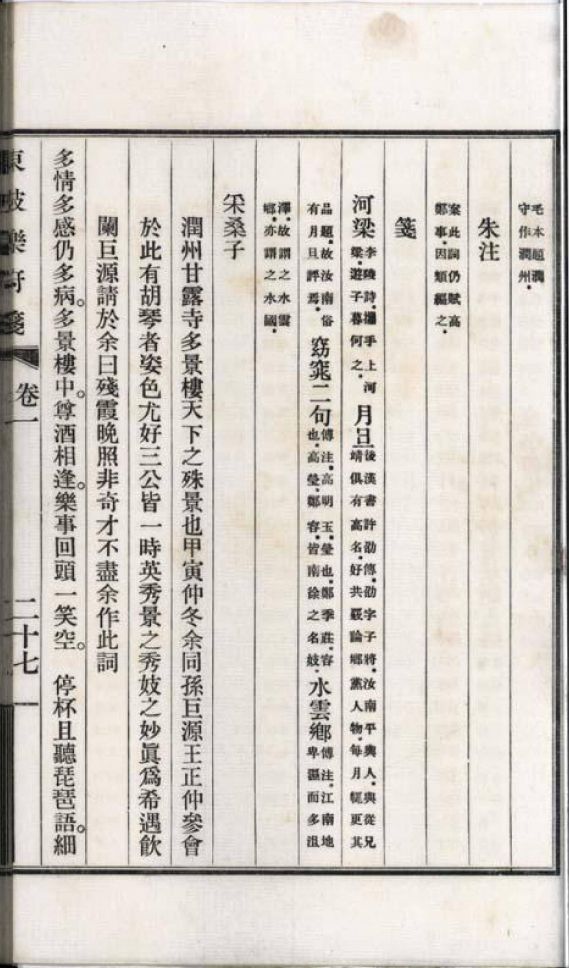 毛本題潤守作潤州。
朱注
案此詞仍賦高鄭事。因類編之。
箋
河梁李陵詩。攜手上河梁。遊子暮何之。月旦後漢書許劭傳。劭字子將。汝南平輿人。與從兄靖俱有高名。好共覈論鄉黨人物。每月輒更其
品題。故汝南俗有月旦評焉。窈窕二句傅注。高明玉瑩也。鄭季莊容也。高瑩。鄭容。皆南徐之名妓。水雲鄉傅注。江南地卑濕而多沮
澤。故謂之水雲鄉。亦謂之水國。
采桑子
潤州甘露寺多景樓天下之殊景也甲寅仲冬余同孫巨源王正仲參會
於此有胡琴者姿色尤好三公皆一時英秀景之秀妓之妙眞爲希遇飮
闌巨源請於余曰殘霞晚照非奇才不盡余作此詞
多情多感仍多病。多景樓中。尊酒相逢。樂事回頭一笑空。　停杯且聽琵琶語。細
東坡樂府箋　卷一　二十七